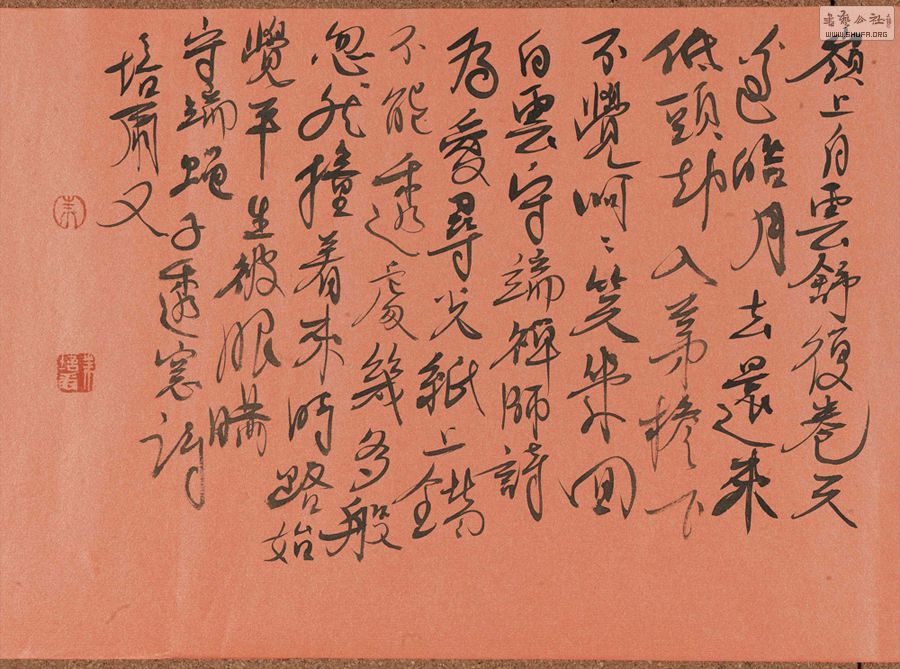 書藝公社
WWW.SHUFA.ORG
嶺上白雲舒復卷天
邊皓月去還來
低頭却入茅檐下
不覺呵〻笑幾回
白雲守端禪師詩
為愛尋光紙上鑽
不能透處幾多般
忽然撞着來時路始
覺平生被眼瞞
守端蠅子透窓詩
培爾又
朱
朱培爾